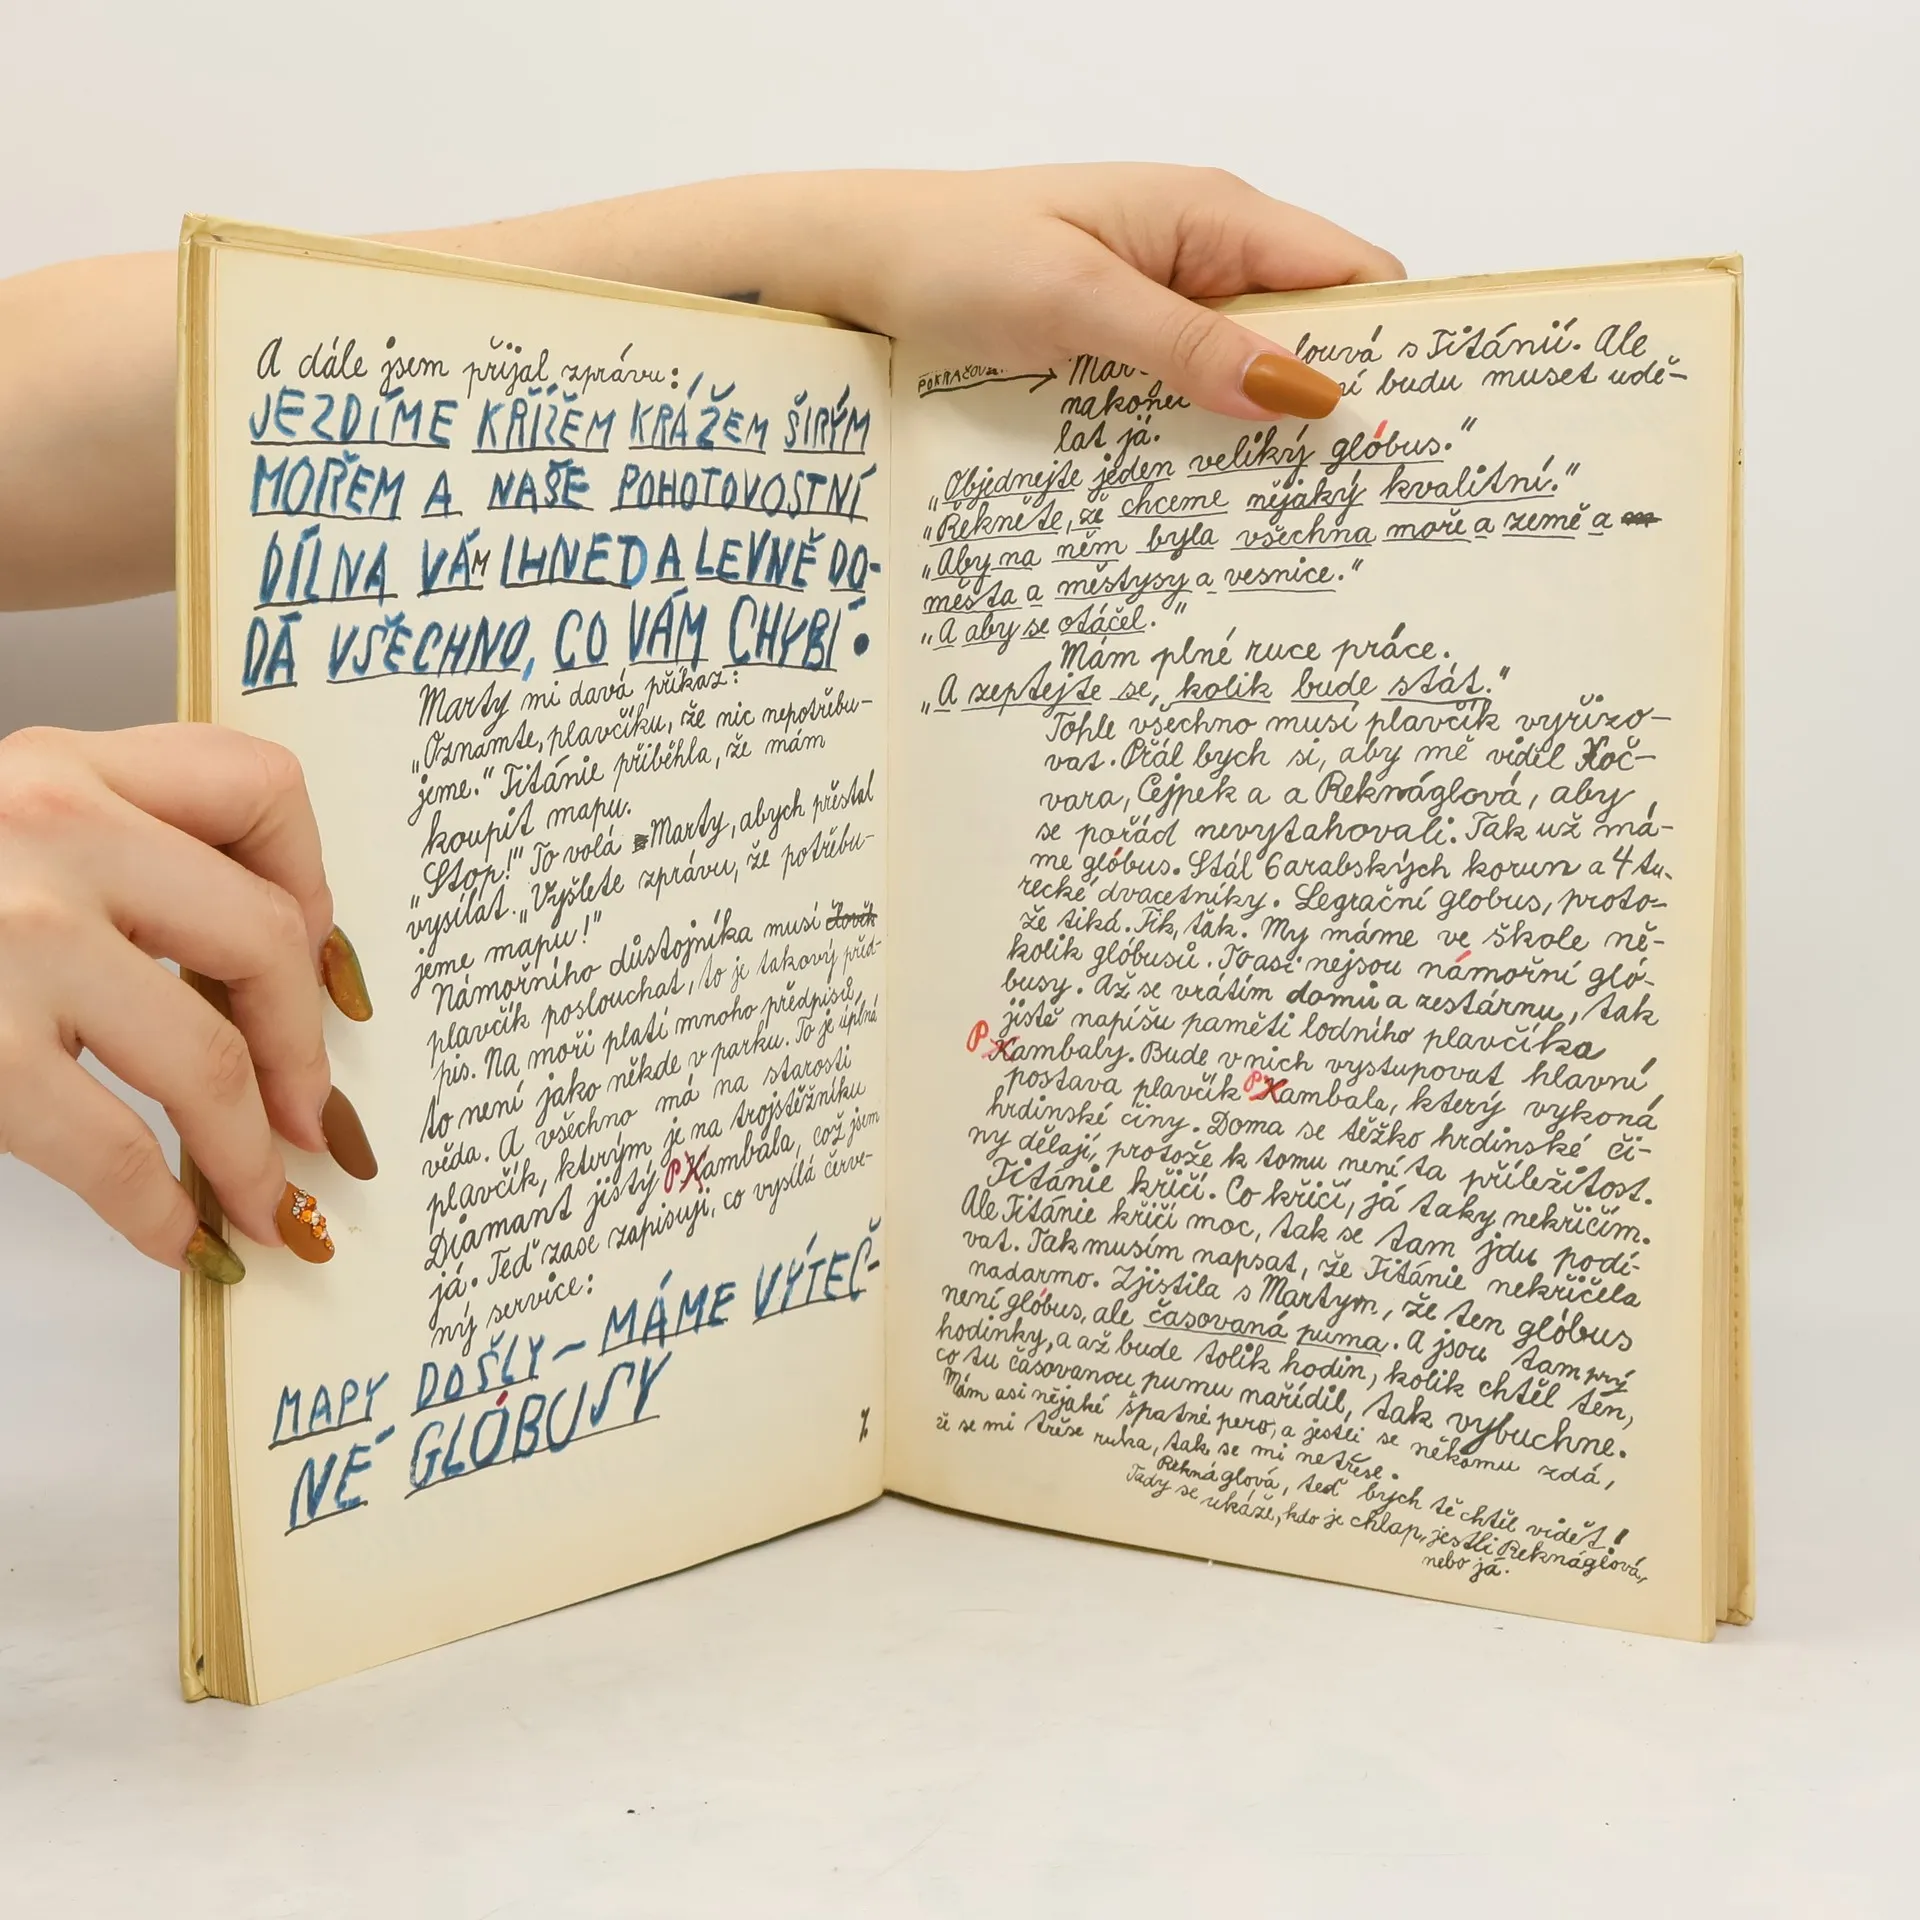 A dále jsem přijal zprávu:
JEZDÍME KŘÍŽEM KRÁŽEM ŠIRÝM
MOŘEM A NAŠE POHOTOVOSTNÍ
DÍLNA VÁM IHNED A LEVNĚ DO-
DÁ VŠECHNO, CO VÁM CHYBÍ.
Marty mi dává příkaz:
„Oznamte, plavčíku, že nic nepotřebu-
jeme." Titánie přiběhla, že mám
koupit mapu.
„Stop!" To volá Marty, abych přestal
vysílat. „Vyšlete zprávu, že potřebu-
jeme mapu!"
Námořního důstojníka musí
plavčík poslouchat, to je takový před-
pis. Na moři platí mnoho předpisů,
to není jako někde v parku. To je úplná
věda. A všechno má na starosti
plavčík, kterým je na trojstěžníku
Diamant jistý PXambala, což jsem
já. Teď zase zapisuji, co vysílá červe-
ný service:
MAPY DOŠLY – MÁME VÝTEČ-
NÉ GLÓBUSY
%
POKRAČOV.
Mar- louvá s Titánií. Ale
nakonec ní budu muset udě-
lat já.
„Objednejte jeden veliký glóbus."
„Řekněte, že chceme nějaký kvalitní."
„Aby na něm byla všechna moře a země a
města a městysy a vesnice."
„A aby se otáčel."
Mám plné ruce práce.
„A zeptejte se, kolik bude stát."
Tohle všechno musí plavčík vyřizo-
vat. Přál bych si, aby mě viděl Koč-
vara, Cejpek a a Reknáglová, aby
se pořád nevytahovali. Tak už má-
me glóbus. Stál 6 arabských korun a 4 tu-
recké dvacetníky. Legrační globus, proto-
že tiká. Tik, ťak. My máme ve škole ně-
kolik glóbusů. To asi nejsou námořní gló-
busy. Až se vrátím domů a zestárnu, tak
jistě napíšu paměti lodního plavčíka
PXambaly. Bude v nich vystupovat hlavní
postava plavčík PXambala, který vykoná
hrdinské činy. Doma se těžko hrdinské či-
ny dělají, protože k tomu není ta příležitost.
Titánie křičí. Co křičí, já taky nekřičím.
Ale Titánie křičí moc, tak se tam jdu podí-
vat. Tak musím napsat, že Titánie nekřičela
nadarmo. Zjistila s Martym, že ten glóbus
není glóbus, ale časovaná puma. A jsou tam prý
hodinky, a až bude tolik hodin, kolik chtěl ten,
co tu časovanou pumu nařídil, tak vybuchne.
Mám asi nějaké špatné pero, a jestli se někomu zdá,
že se mi třese ruka, tak se mi netřese.
Reknáglová, teď bych tě chtěl vidět!
Tady se ukáže, kdo je chlap, jestli Reknáglová,
nebo já.